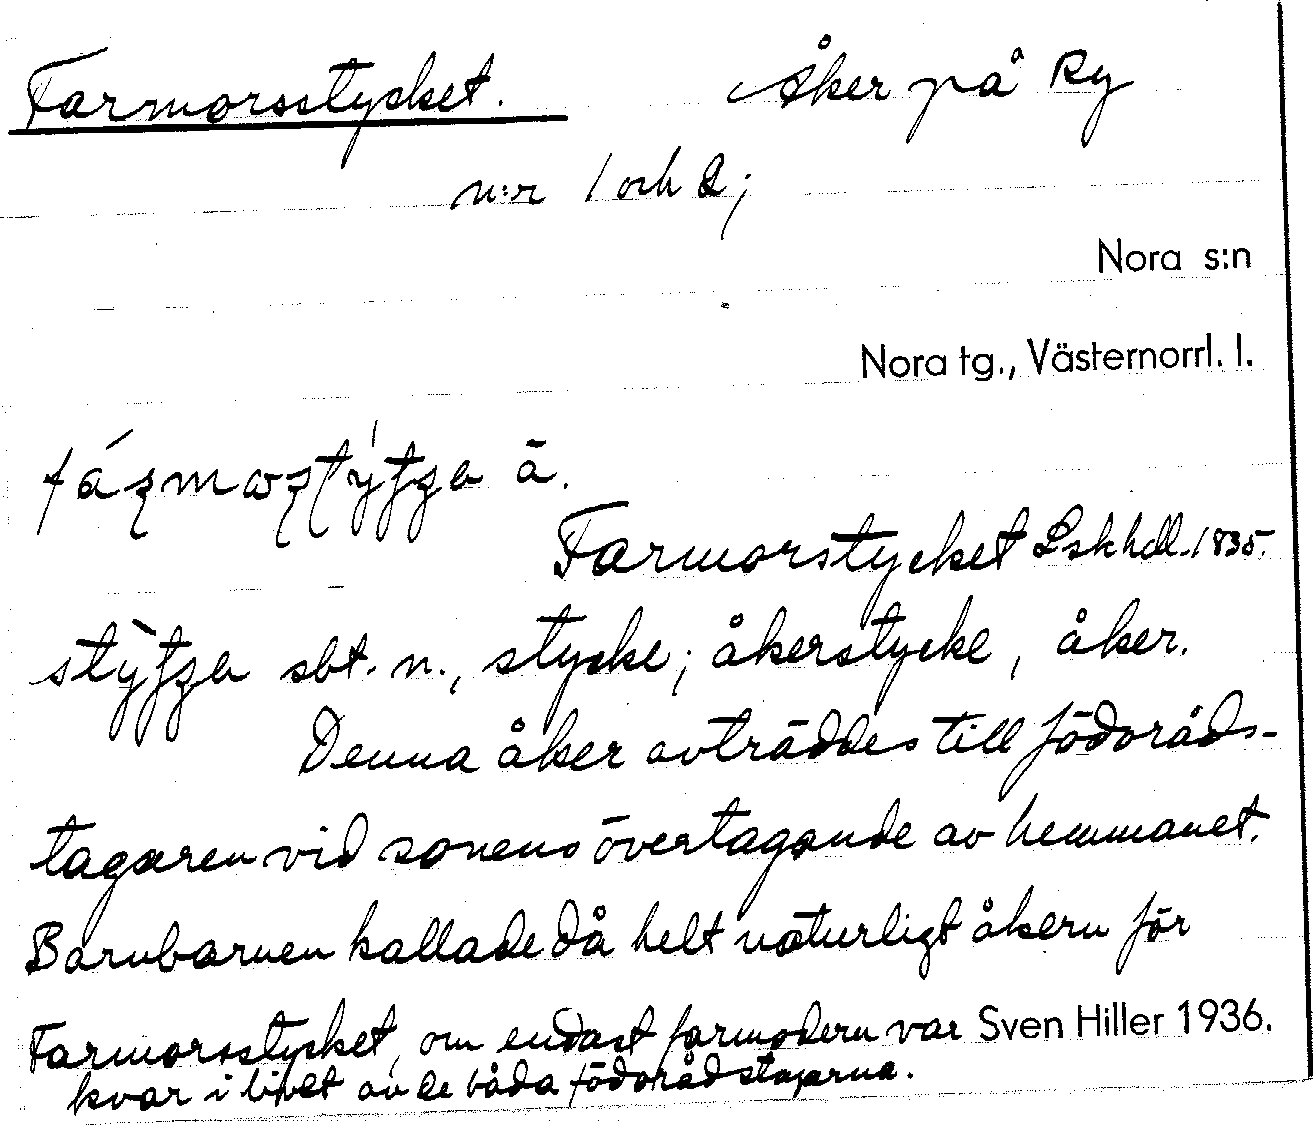 Farmorsstycket. Åker på Ry
n:r 1 och 2;
Nora s:n
Nora tg., Västernorrl. l.
ā.
Farmorstycket Lskhdl. 1835.
sbt. n., stycke; åkerstycke, åker.
Denna åker avträddes till födoråds-
tagaren vid sonens övertagande av hemmanet.
Barnbarnen kallade då helt naturligt åkern för
Farmorsstycket, om endast farmodern var Sven Hiller 1936.
kvar i livet av de båda födorådstagarna.